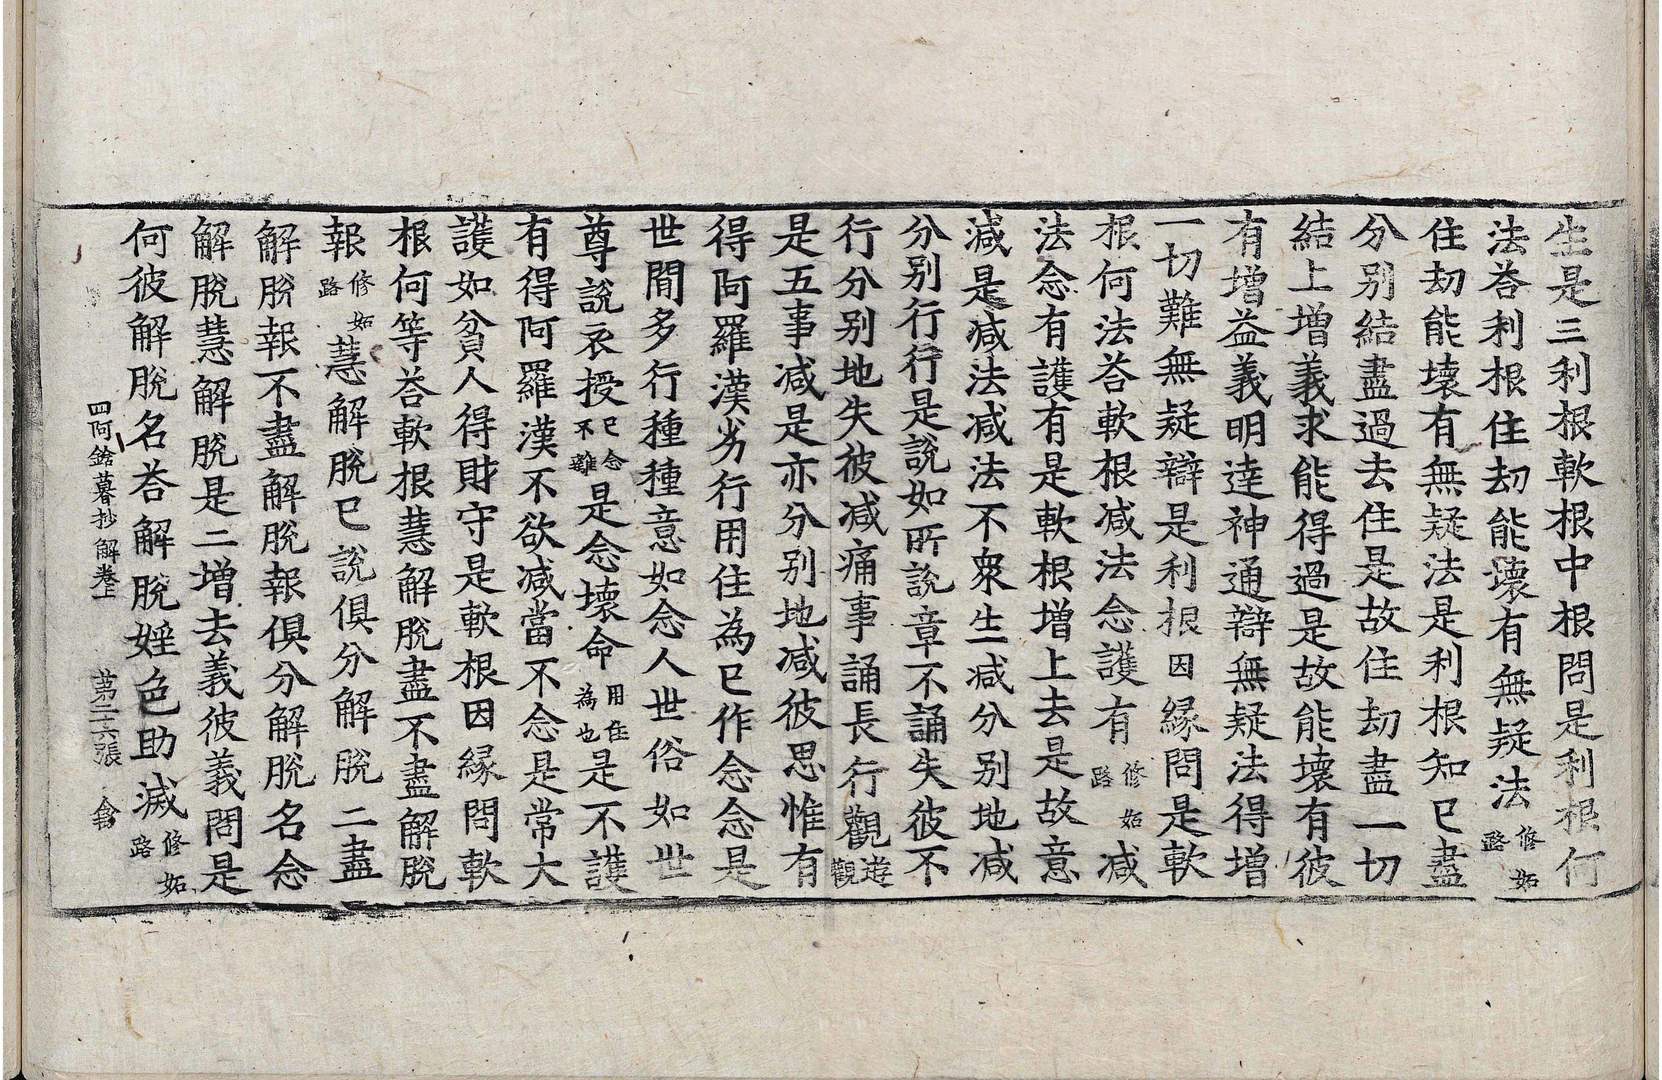 生是三利根軟根中根問是利根何
法荅利根住劫能壞有無疑法修妬路
住劫能壞有無疑法是利根知已盡
分別結盡過去住是故住劫盡一切
結上增義求能得過是故能壞有彼
有增益義明達神通辯無疑法得增
一切難無疑辯是利根因緣問是軟
根何法荅軟根減法念護有修妬路減
法念有護有是軟根增上去是故意
減是減法減法不衆生減分別地減
分別行行是說如所說章不誦失彼不
行分別地失彼減痛事誦長行觀遊觀
是五事減是亦分別地減彼思惟有
得阿羅漢劣行用住為已作念念是
世間多行種種意如念人世俗如世
尊說衣授已念不離是念壞命用住為也是不護
有得阿羅漢不欲減當不念是常大
護如貧人得財守是軟根因緣問軟
根何等荅軟根慧解脫盡不盡解脫
報修妬路慧解脫已說俱分解脫二盡
解脫報不盡解脫報俱分解脫名念
解脫慧解脫是二增去義彼義問是
何彼解脫名荅解脫婬色助滅修妬路
四阿鋡暮抄解卷上 第二六張 禽